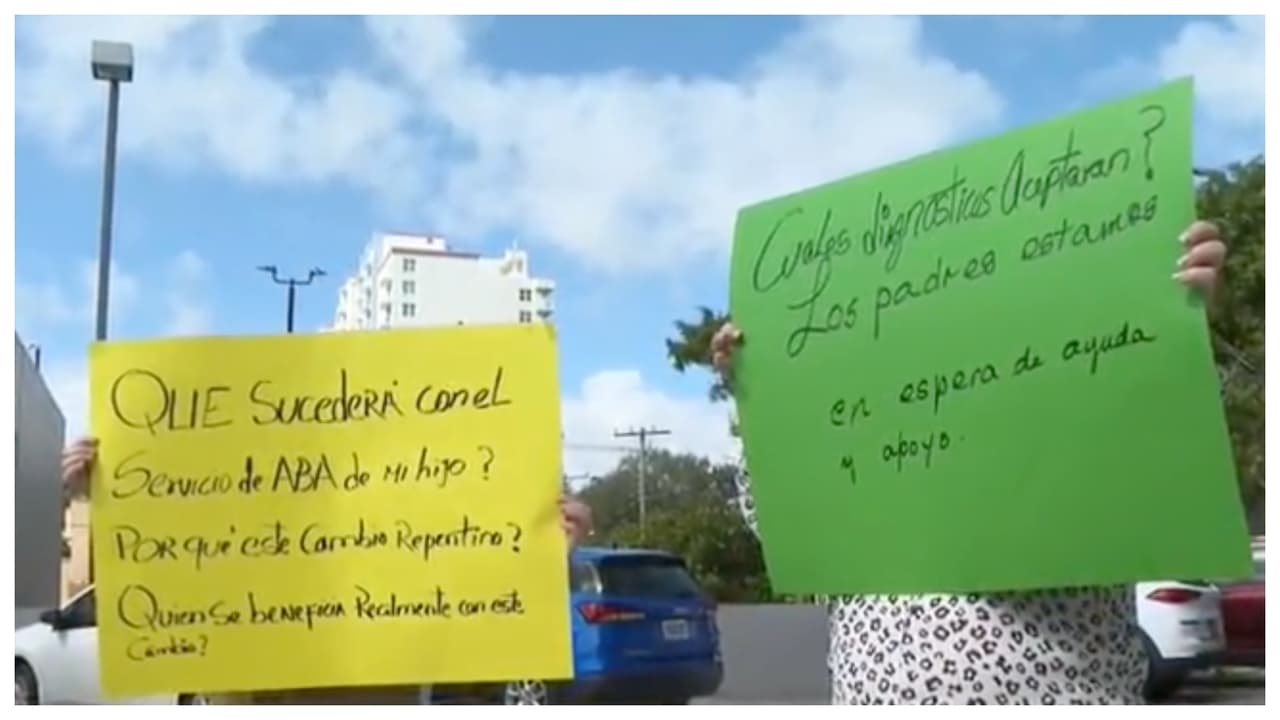 QUE SucedeRÁ con el
Servicio de ABA de Mi hijo?
POR qué este Cambio Repentino?
Quien Se beneficia Realmente con este
Cambio?
Cuales dignosticos Aceptaran?
Los padres estamos
en espera de ayuda
y apoyo.